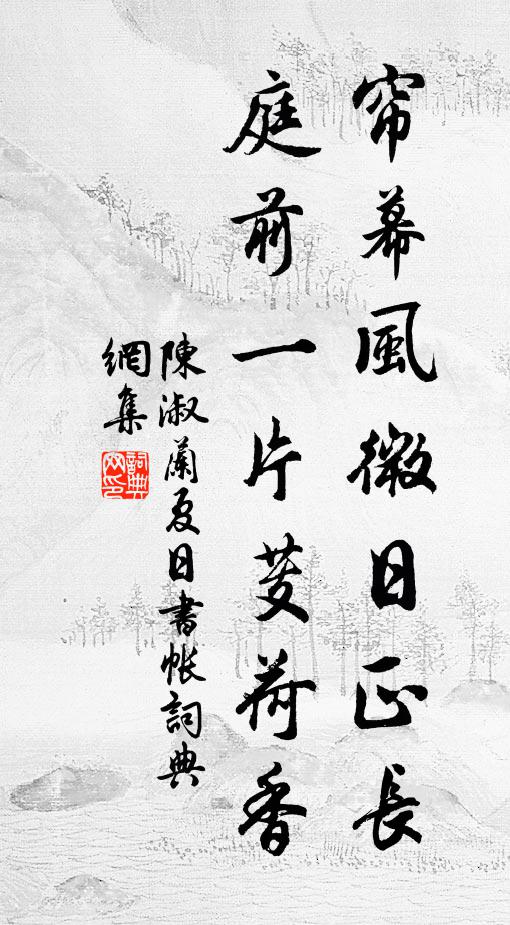 帘幕風微日正長
庭前一片芰荷香
陳淑蘭夏日書帐詞典
網集
詞典網印